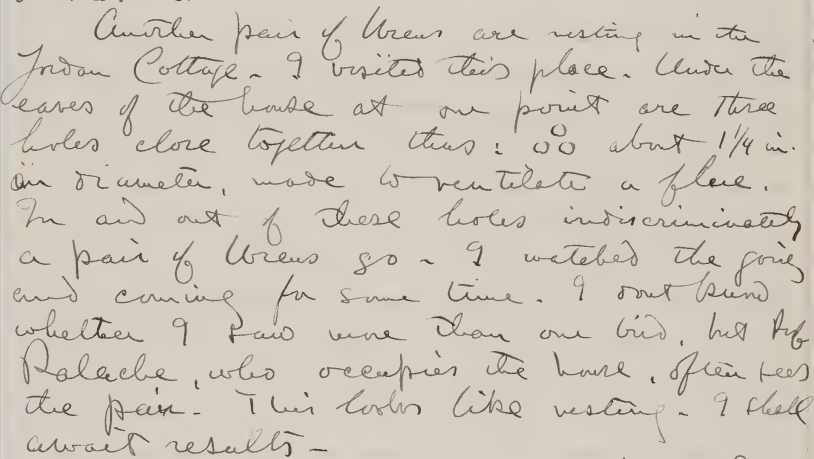 Another pair of Wrens are nesting in the
Jordan Cottage - I visited this place. Under the
eaves of the house at one point are three
holes close together thus: about 1 1/4 in.
in diameter, made to ventilate a flue.
In and out of these holes indiscriminately
a pair of Wrens go - I watched the going
and coming for some time. I dont know
whether I saw more than one bird, but Prof
Palache, who occupies the house, often sees
the pair. This looks like nesting. I shall
await results -